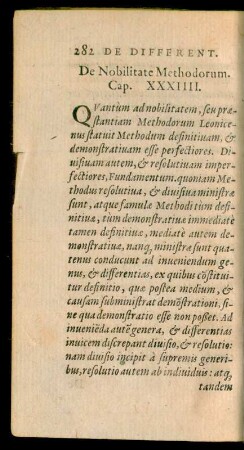 282 DE DIFFERENT.
De Nobilitate Methodorum.
Cap. XXXIIII.
QVantum ad nobilitatem, seu præ-
stantiam Methodorum Leonice-
nus statuit Methodum definitiuam, &
demonstratiuam esse perfectiores. Di-
uisiuam autem, & resolutiuam imper-
fectiores, Fundamentum. quoniam Me-
thodus resolutiua, & diuisiua ministræ
sunt, atque famulæ Methodi tum defi-
nitiuæ, tum demonstratiuæ immediatè
tamen definitiuæ, mediatè autem de-
monstratiuæ, nanq, ministræ sunt qua-
tenus conducunt ad inueniendum ge-
nus, & differentias, ex quibus cōstitui-
tur definitio, quæ postea medium, &
causam subministrat demōstrationi. si-
ne qua demonstratio esse non posset. Ad
inueniēda autē genera, & differentias
inuicem discrepant diuisio, & resolutio:
nam diuisio incipit à supremis generi-
bus, resolutio autem ab indiuiduis: atq,
tandem